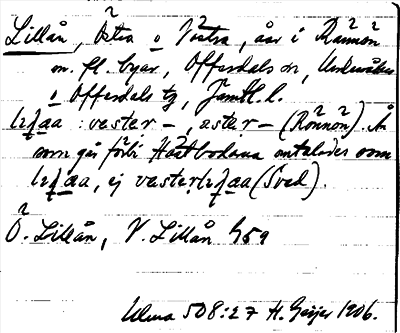 Lillån, Östra o Västra, åar i Rännön
m. fl. byar, Offerdals sn, Undersåkers
o Offerdals tg, Jämtl. l.
: vester – , aster – (Rönnön). Ån
som går förbi Höstbodarna omtalades som
, ej vester (Sved).
Ö. Lillån, V. Lillån G59
Ulma 508:27 H. Geijer 1906.